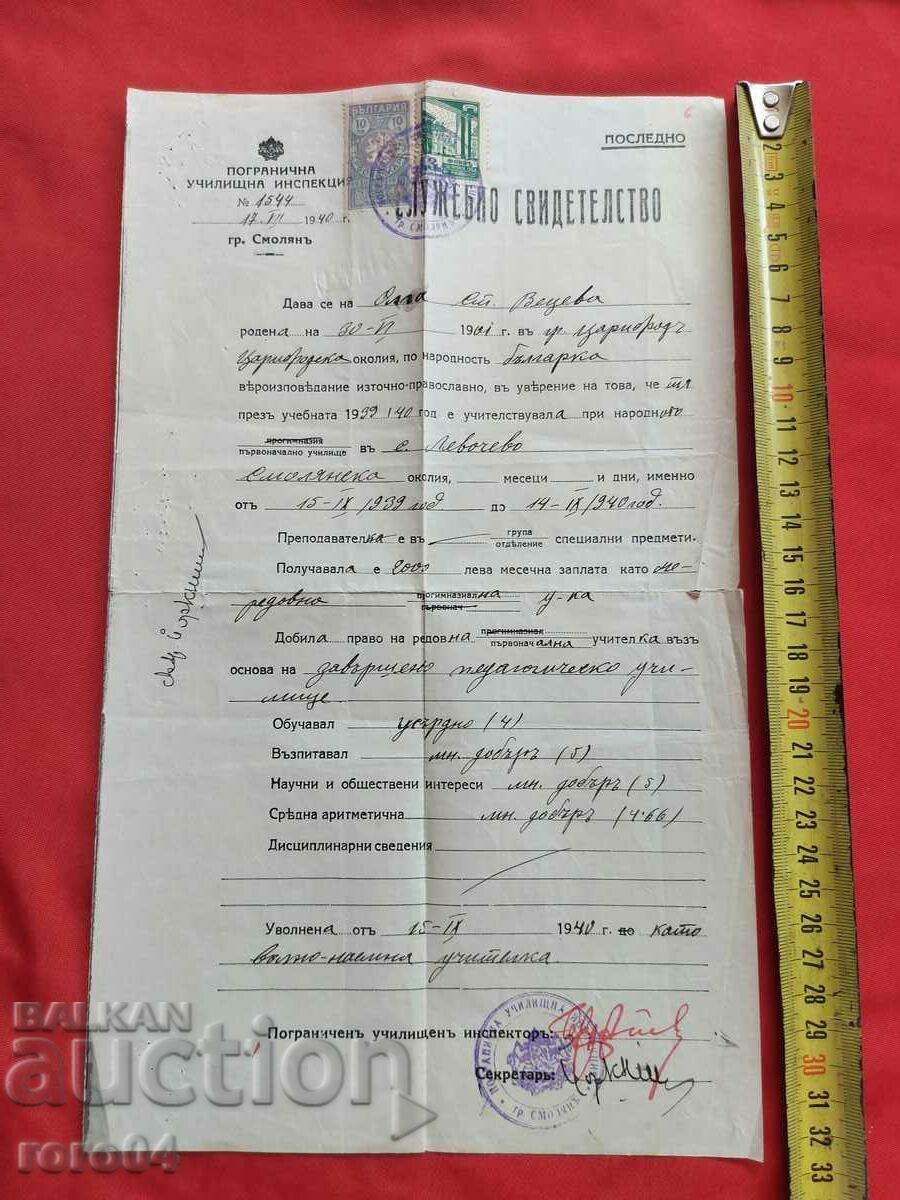 ПОСЛЕДНО
ПОГРАНИЧНА
УЧИЛИЩНА ИНСПЕКЦИЯ
№ 1544
17. VII 1940 г.
гр. Смолянъ
БЪЛГАРИЯ
10 10
СЛУЖЕБНО СВИДЕТЕЛСТВО
Дава се на Ст. Вецева
родена на 30-VI 1901 г. въ гр. Цариброд
Царибродска околия, по народность българка
вѣроизповѣдание източно-православно, въ уверение на това, че тя
презъ учебната 1939/40 год е учителствувала при народно
прогимназия
първоначално училище въ с. Левочево
Смолянска околия, месеци и дни, именно
отъ 15-IX/1939 год до 14-IX/1940 год.
Преподавателка е въ група
отдѣление специални предмети.
Получавала е 2000 лева месечна заплата като не-
редовна прогимназиална
първонач у-ка
Добила право на редовна прогимназиал
първоначална учителка възъ
основа на завършено педагогическо учи-
лище
Обучавал усърдно (4)
Възпитавал мн. добъръ (5)
Научни и обществени интереси мн. добъръ (5)
Срѣдна аритметична мн. добъръ (4.66)
Дисциплинарни сведения
Уволнена отъ 15-IX 1940 г. до като
волно-наемна учителка.
Пограниченъ училищенъ инспекторъ:
Секретарь:
гр. СМОЛЯНЪ
BALKAN
auction
roro04
2 3 4 5 6 7 8 9 10 11 12 13 14 15 16 17 18 19 20 21 22 23 24 25 26 27 28 29 30 31 32 33